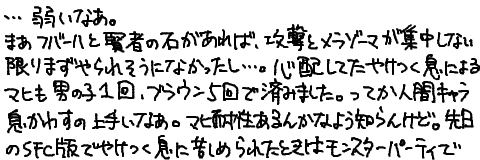 … 弱いなあ。
まあフバールと賢者の石があれば、攻撃とメラゾーマが集中しない
限りまずやられそうになかったし…。心配してたやけつく息による
マヒも男の子1回、ブラウン5回で済みました。ってか人間キャラ
息かわすの上手いなあ。マヒ耐性あるんかなよう知らんけど。先日
のSFC版でやけつく息に苦しめられたときはモンスターパーティで